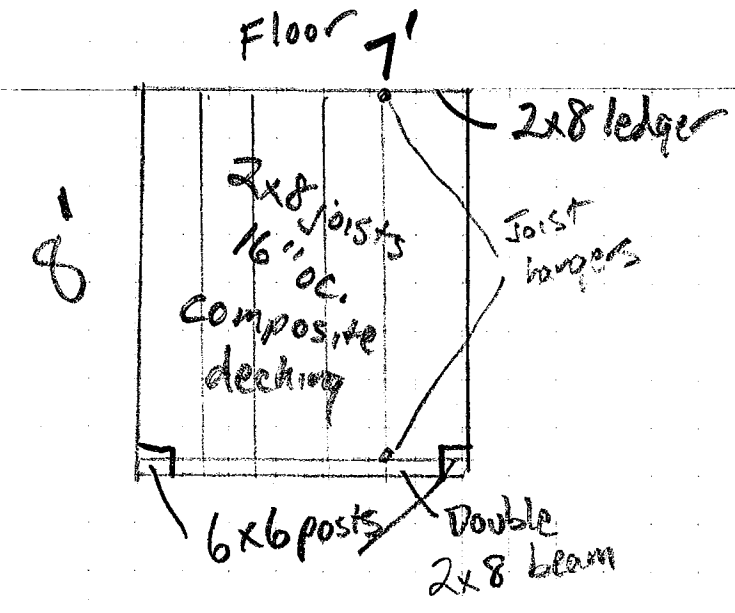 Floor 7'
2x8 ledger
8'
2x8 joists
16" oc.
composite
decking
Joist
hangers
6x6 posts
Double
2x8 beam